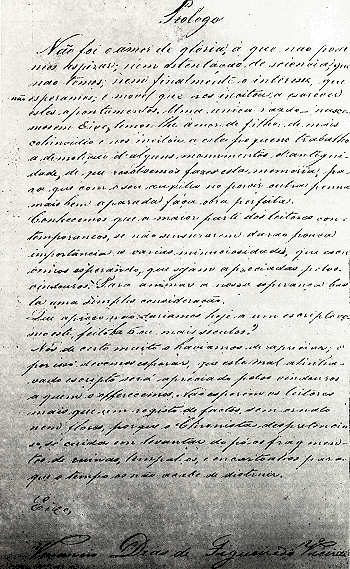 Prologo
Não foi o amor de gloria, a que não pode
mos aspirar; nem ostentação de sciencia, que
não temos; nem finalmente o interesse, que
não esperamos; o movel que nos incitou, a escrever
estes apontamentos. Uma unica razão nasce
mos em Eixo, temos-lhe amor de filho, de mais
conhecido e nos incitou a este pequeno trabalho
a de notíciado d'alguns monumentos d'antigui
dade, de que resolvemos fazer esta memoria, pa
ra que com o seu auxilio no porvir outra penna
mais bem aparada faça obra perfeita.
Conhecemos que a maior parte dos leitores con
temporaneos, se não censurarem darão pouca
importancia a varias minuciosidades, que escre
vemos esperando, que sejam apreciadas pelos
vindouros. Para animar a nossa esperança bas
ta uma simples consideração.
Que apreço não dariamos hoje a um escripto co
mo este, feito ha ou mais seculos?
Nós de certo muito o haviamos de apreciar, e
por isso devemos esperar, que este mal alinha
vado escripto será apreciado pelos vindouros
a quem o offerecemos. Não esperem os leitores
mais que um registo de factos, sem ornato
nem flores, porque o Chronista despretencio
so, só cuida em levantar do pó os fragmen
tos de ruinas, tempolos, e encontral-os para
que o tempo os não acabe de destruir.
Eixo,
Venancio Dias de Figueiredo Vieira